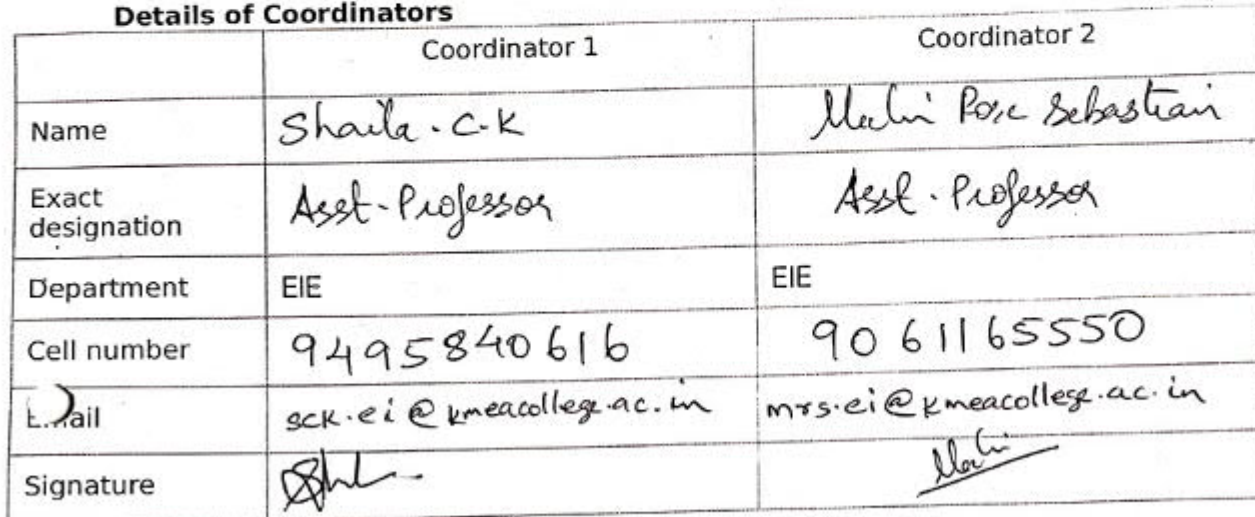 Details of Coordinators
Coordinator 1 Coordinator 2
Name Shaila . C . K Sebastian
Exact designation Asst - Professor Asst . Professor
Department EIE EIE
Cell number 9495840616 9061165550
sck.ei@kmeacollege.ac.in mrs.ei@kmeacollege.ac.in
Signature